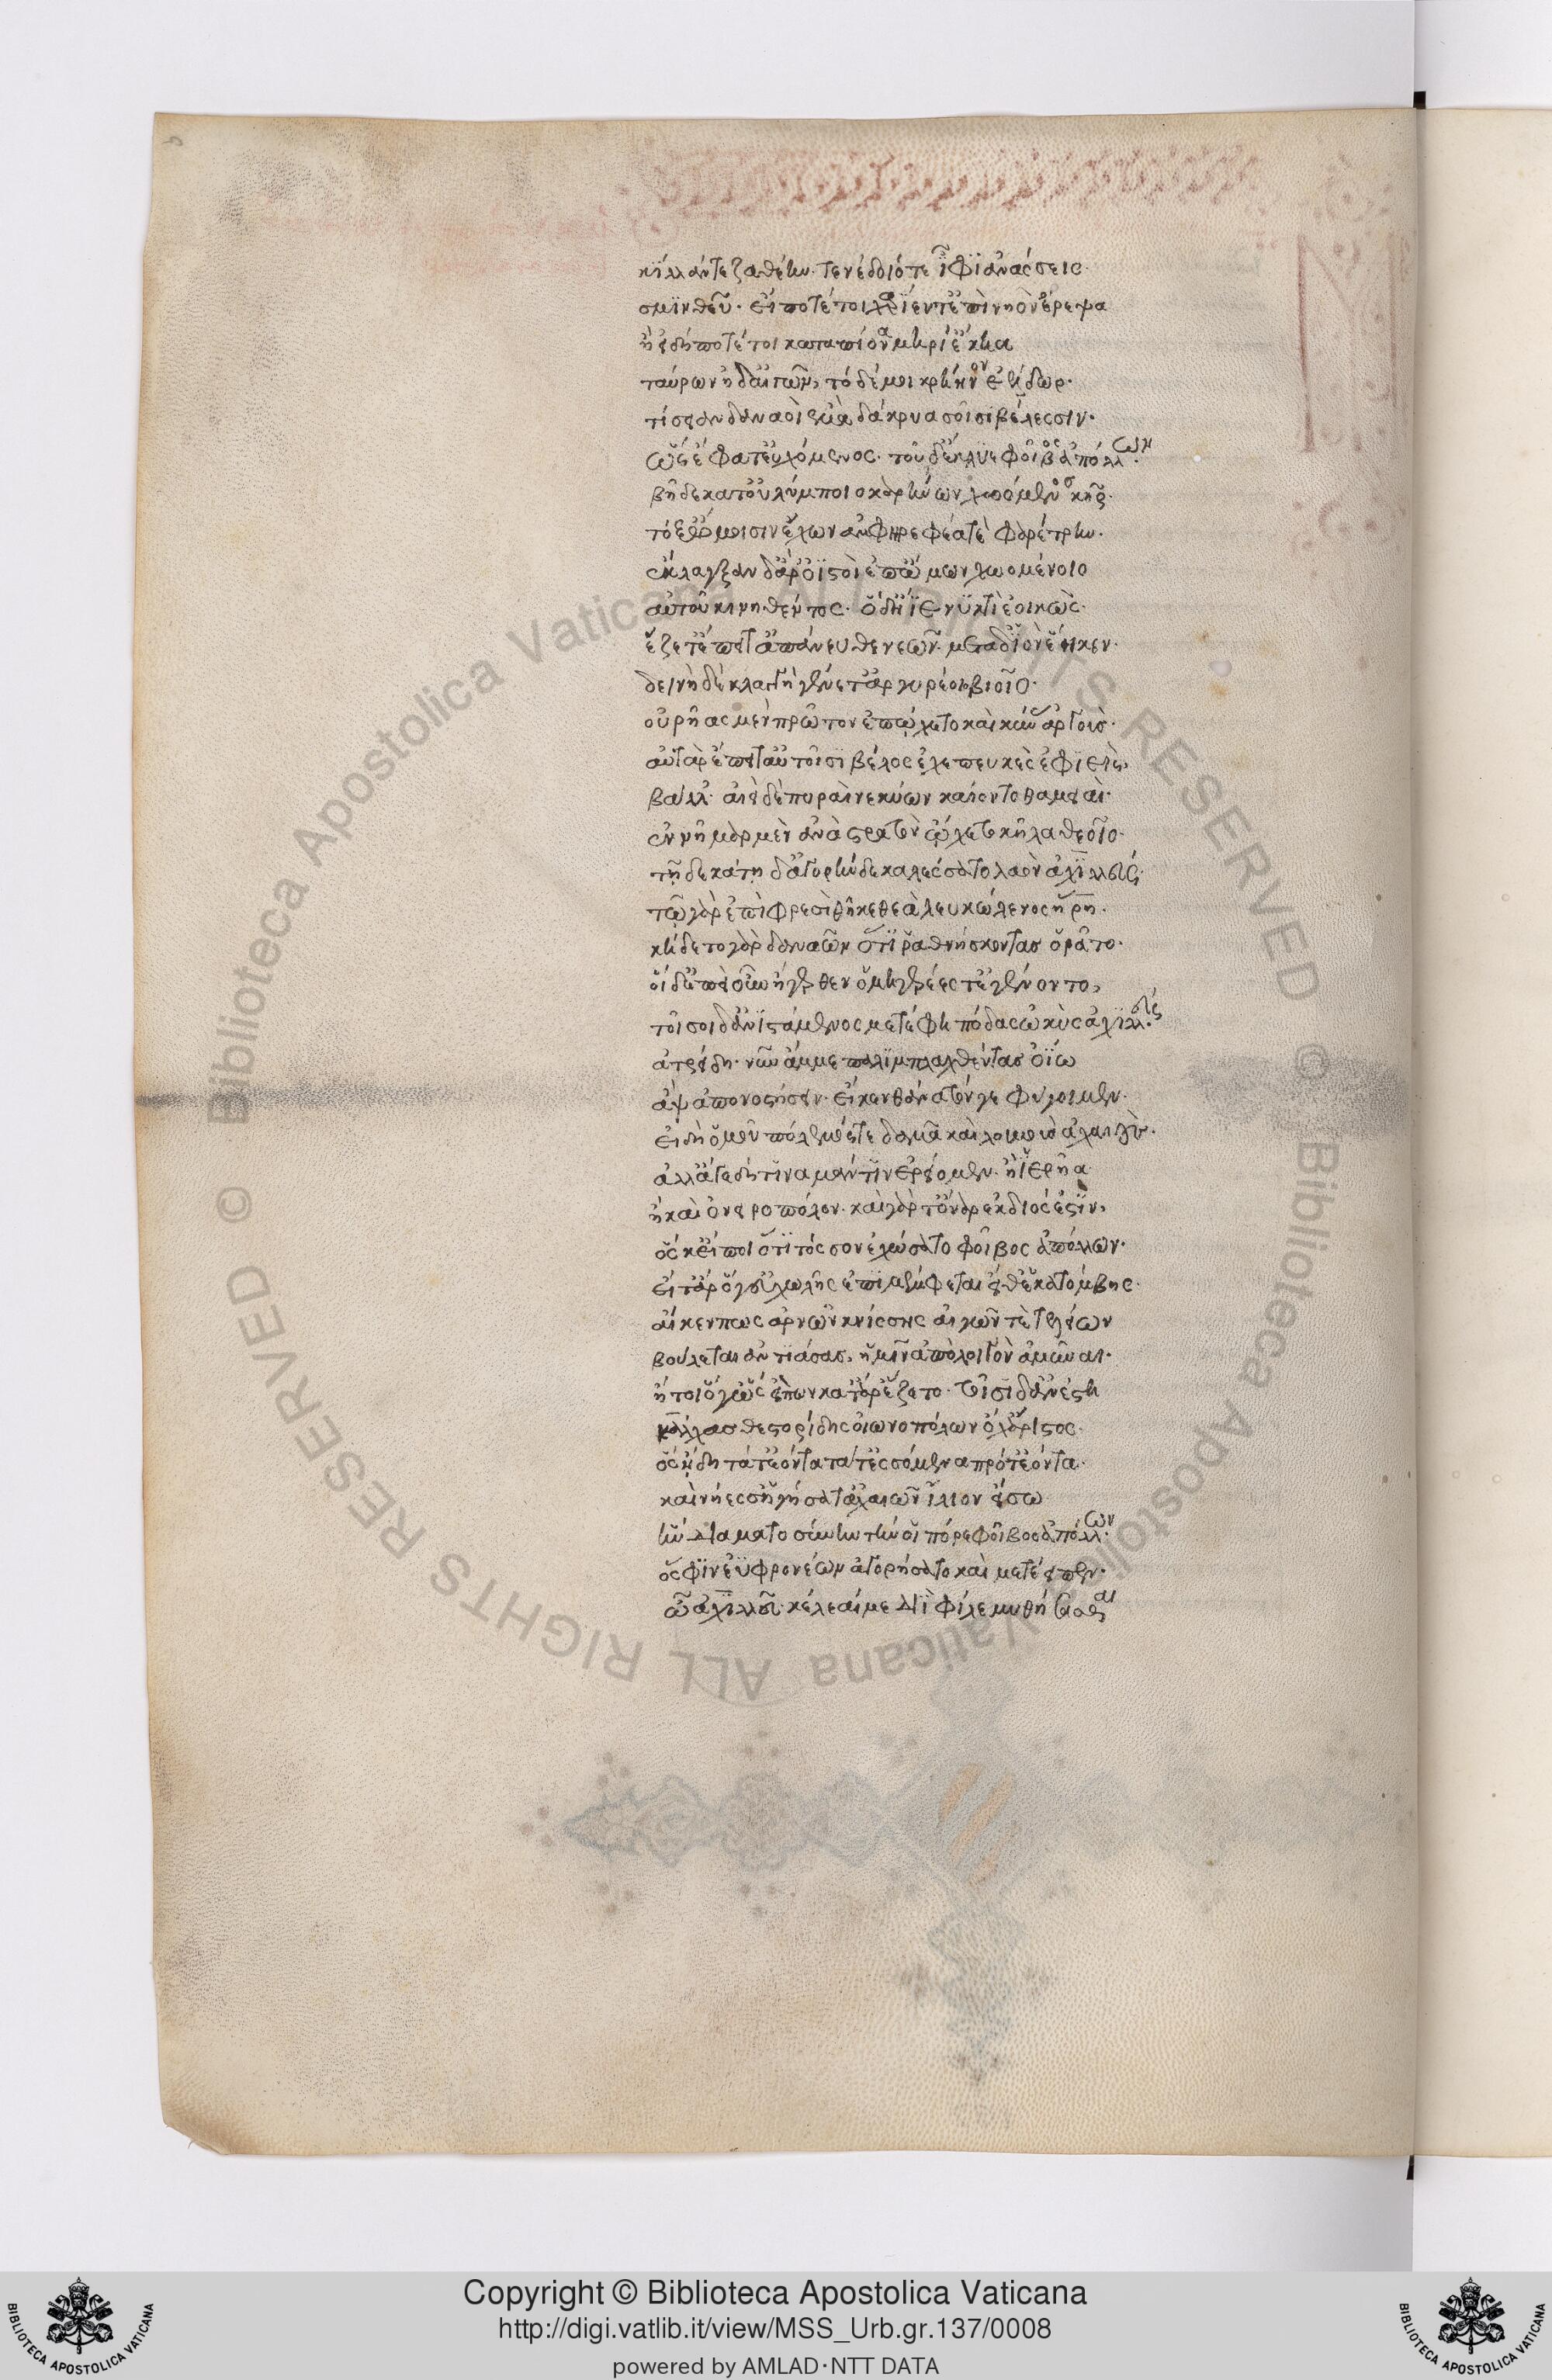 κίλλάν τε ζαθέην· τενέδοιό τε ἶφι ἀνάσσεις·
σμινθεῦ· εἴ ποτέ τοι χαρίεντ' ἐπὶ νηὸν ἔρεψα
ἢ εἰ δή ποτέ τοι κατὰ πίονα μηρί' ἔκηα
ταύρων ἠδ' αἰγῶν, τόδε μοι κρήηνον ἐέλδωρ·
τίσειαν δαναοὶ ἐμὰ δάκρυα σοῖσι βέλεσσιν·
ὣς ἔφατ' εὐχόμενος· τοῦ δ' ἔκλυε φοῖβος ἀπόλλων·
βῆ δὲ κατ' οὐλύμποιο καρήνων χωόμενος κῆρ·
τόξ' ὤμοισιν ἔχων ἀμφηρεφέα τὲ φαρέτρην·
ἔκλαγξαν δ' ἄρ' ὀϊστοὶ ἐπ' ὤμων χωομένοιο
αὐτοῦ κινηθέντος· ὃ δ' ἤϊε νυκτὶ ἐοικώς·
ἕζετ' ἔπειτ' ἀπάνευθε νεῶν· μετὰ δ' ἰὸν ἕηκεν·
δεινὴ δὲ κλαγγὴ γένετ' ἀργυρέοιο βιοῖο·
οὐρῆας μὲν πρῶτον ἐπῴχετο καὶ κύνας ἀργούς·
αὐτὰρ ἔπειτ' αὐτοῖσι βέλος ἐχεπευκὲς ἐφιεὶς,
βάλλ'· αἰεὶ δὲ πυραὶ νεκύων καίοντο θαμειαί·
ἐννῆμαρ μὲν ἀνὰ στρατὸν ᾤχετο κῆλα θεοῖο·
τῇ δεκάτῃ δ' ἀγορὴν δὲ καλέσσατο λαὸν ἀχιλλεύς·
τῷ γὰρ ἐπὶ φρεσὶ θῆκε θεὰ λευκώλενος ἥρη·
κήδετο γὰρ δαναῶν ὅτι ῥα θνήσκοντας ὁρᾶτο·
οἳ δ' ἐπεὶ οὖν ἤγερθεν ὁμηγερέες τ' ἐγένοντο,
τοῖσι δ' ἀνιστάμενος μετέφη πόδας ὠκὺς ἀχιλλεύς·
ἀτρείδη· νῦν ἄμμε παλιμπλαγχθέντας ὀΐω
ἂψ ἀπονοστήσειν· εἴ κεν θάνατόν γε φύγοιμεν·
εἰ δὴ ὁμοῦ πόλεμός τε δαμᾷ καὶ λοιμὸς ἀχαιούς·
ἀλλ' ἄγε δή τινα μάντιν ἐρείομεν· ἢ ἱερῆα
ἢ καὶ ὀνειροπόλον· καὶ γάρ τ' ὄναρ ἐκ διός ἐστιν,
ὅς κ' εἴποι ὅτι τόσσον ἐχώσατο φοῖβος ἀπόλλων·
εἴ τ' ἄρ ὅγ' εὐχωλῆς ἐπιμέμφεται εἴθ' ἑκατόμβης·
αἴ κέν πως ἀρνῶν κνίσσης αἰγῶν τὲ τελείων
βούλεται ἀντιάσας, ἡμῖν ἀπὸ λοιγὸν ἀμῦναι·
ἤτοι ὅγ' ὣς εἰπὼν κατ' ἄρ' ἕζετο· τοῖσι δ' ἀνέστη
κάλχας θεστορίδης οἰωνοπόλων ὄχ' ἄριστος·
ὃς ᾔδη τά τ' ἐόντα τά τ' ἐσσόμενα πρό τ' ἐόντα·
καὶ νήεσσ' ἡγήσατ' ἀχαιῶν ἴλιον εἴσω
ἣν διὰ μαντοσύνην τὴν οἱ πόρε φοῖβος ἀπόλλων·
ὅς φιν ἐϋφρονέων ἀγορήσατο καὶ μετέειπεν·
ὦ ἀχιλλεῦ· κέλεαί με διῒ φίλε μυθήσασθαι
Copyright © Biblioteca Apostolica Vaticana
http://digi.vatlib.it/view/MSS_Urb.gr.137/0008
powered by AMLAD·NTT DATA